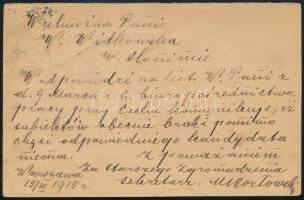 Wielmożna Pani
W. Witkowska
w Słonimie.
W odpowiedzi na list W. Pani z
d. 9 Marca r. b. biuro pośrednictwa
pracy przy Cechu komunikuje, iż
subjektów obecnie brak i pomimo
chęci odpowiedniego kandydata
niema. Z poważaniem
Warszawa Za Starszego Zgromadzenia
15/III 1915 r. Sekretarz: M Kozłowski